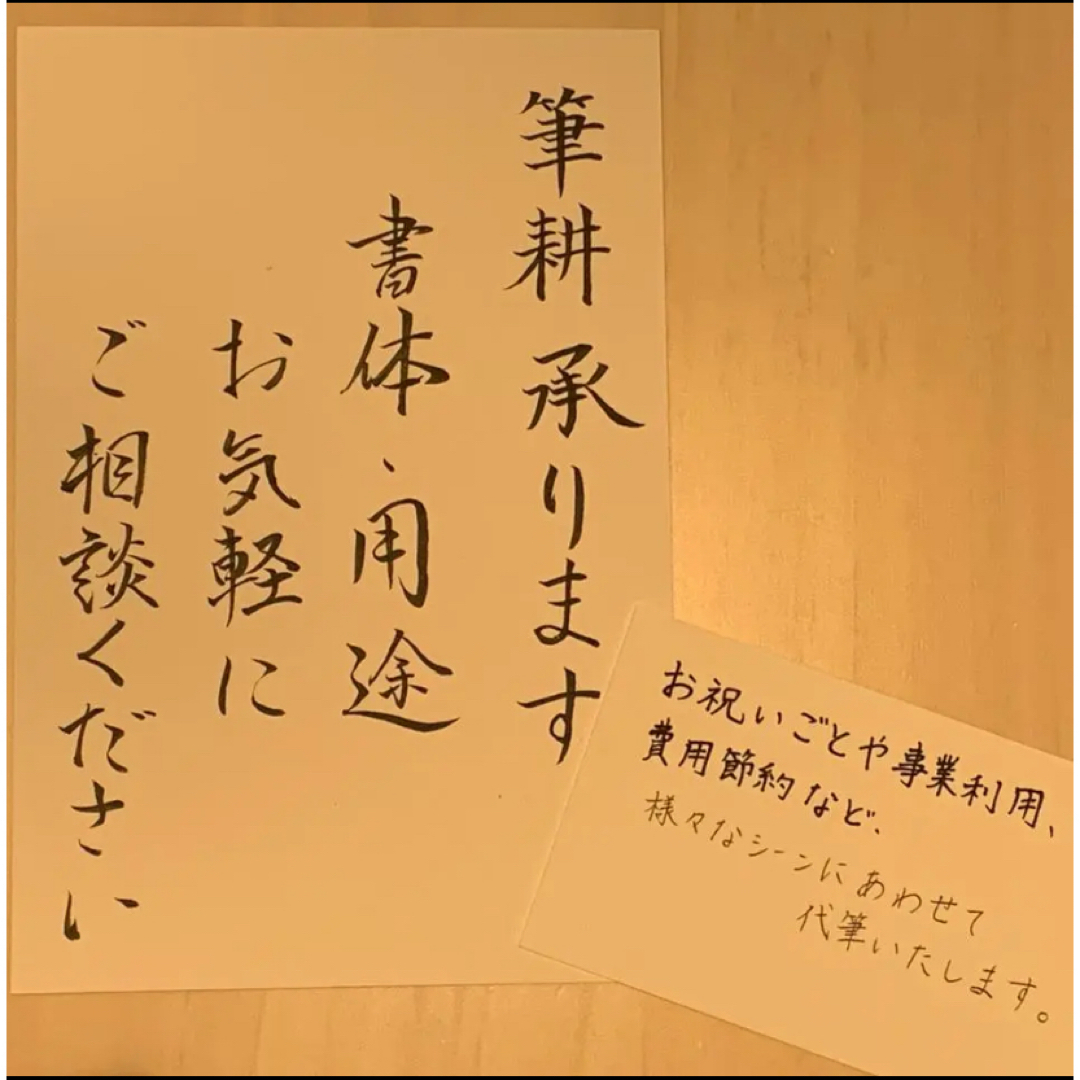 筆耕承ります
書体、用途
お気軽に
ご相談ください
お祝いごとや事業利用、
費用節約など、
様々なシーンにあわせて
代筆いたします。